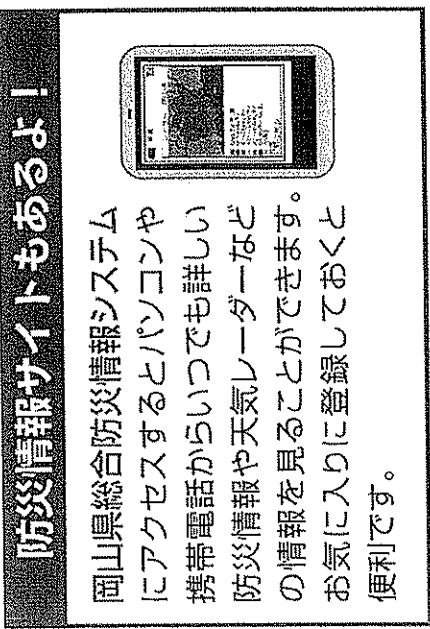 防災情報サイトもあるよ！
岡山県総合防災情報システム
にアクセスするとパソコンや
携帯電話からいつでも詳しい
防災情報や天気レーダーなど
の情報を見ることができます。
お気に入りに登録しておくと
便利です。